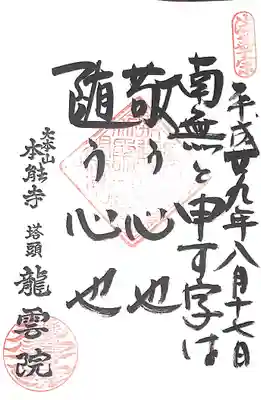 平成廿九年八月十七日
南無と申す字は
敬う心也
随う心也
大本山
本能寺 塔頭 龍雲院